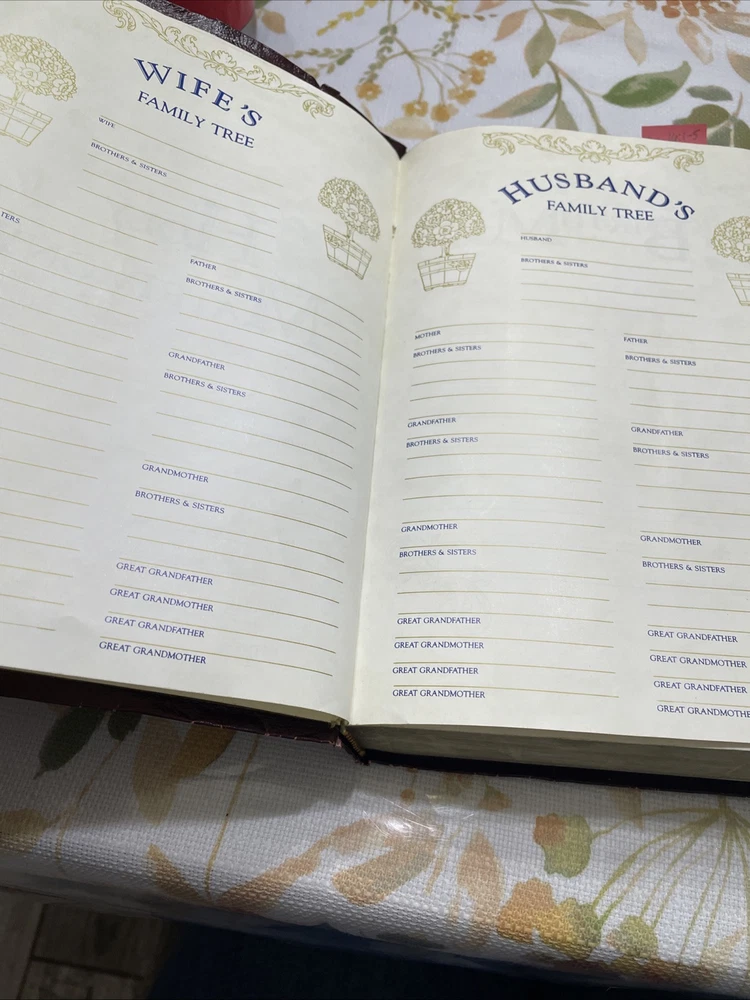 WIFE'S
FAMILY TREE
WIFE
BROTHERS & SISTERS
FATHER
BROTHERS & SISTERS
GRANDFATHER
BROTHERS & SISTERS
GRANDMOTHER
BROTHERS & SISTERS
GREAT GRANDFATHER
GREAT GRANDMOTHER
GREAT GRANDFATHER
GREAT GRANDMOTHER
HUSBAND'S
FAMILY TREE
HUSBAND
BROTHERS & SISTERS
MOTHER
BROTHERS & SISTERS
GRANDFATHER
BROTHERS & SISTERS
GRANDMOTHER
BROTHERS & SISTERS
GREAT GRANDFATHER
GREAT GRANDMOTHER
GREAT GRANDFATHER
GREAT GRANDMOTHER
FATHER
BROTHERS & SISTERS
GRANDFATHER
BROTHERS & SISTERS
GRANDMOTHER
BROTHERS & SISTERS
GREAT GRANDFATHER
GREAT GRANDMOTHER
GREAT GRANDFATHER
GREAT GRANDMOTHE